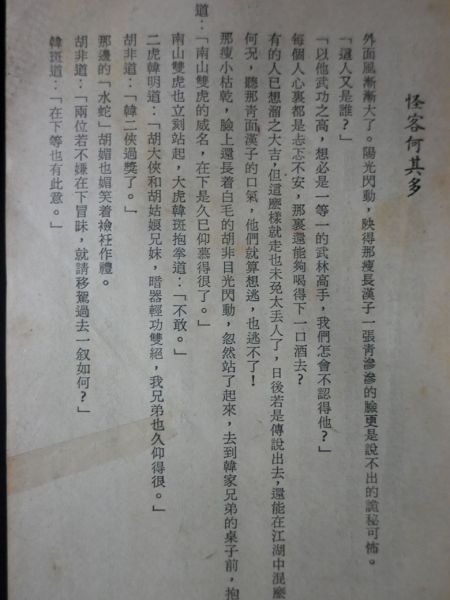 怪客何其多
外面風漸漸大了。陽光閃動，映得那瘦長漢子一張青滲滲的臉更是說不出的詭秘可怖。
「這人又是誰？」
「以他武功之高，想必是一等一的武林高手，我們怎會不認得他？」
每個人心裏都是忐忑不安，那裏還能夠喝得下一口酒去？
有的人已想溜之大吉，但這麽樣就走也未免太丟人了，日後若是傳說出去，還能在江湖中混麽
何況，聽那青面漢子的口氣，他們就算想逃，也逃不了！
那瘦小枯乾，臉上還長着白毛的胡非目光閃動，忽然站了起來，去到韓家兄弟的桌子前，抱
道：「南山雙虎的威名，在下是久已仰慕得很了。」
南山雙虎也立刻站起，大虎韓斑抱拳道：「不敢。」
二虎韓明道：「胡大俠和胡姑娘兄妹，暗器輕功雙絕，我兄弟也久仰得很。」
胡非道：「韓二俠過獎了。」
那邊的「水蛇」胡媚也媚笑着襝衽作禮。
胡非道：「兩位若不嫌在下冒昧，就請移駕過去一叙如何？」
韓斑道：「在下等也有此意。」